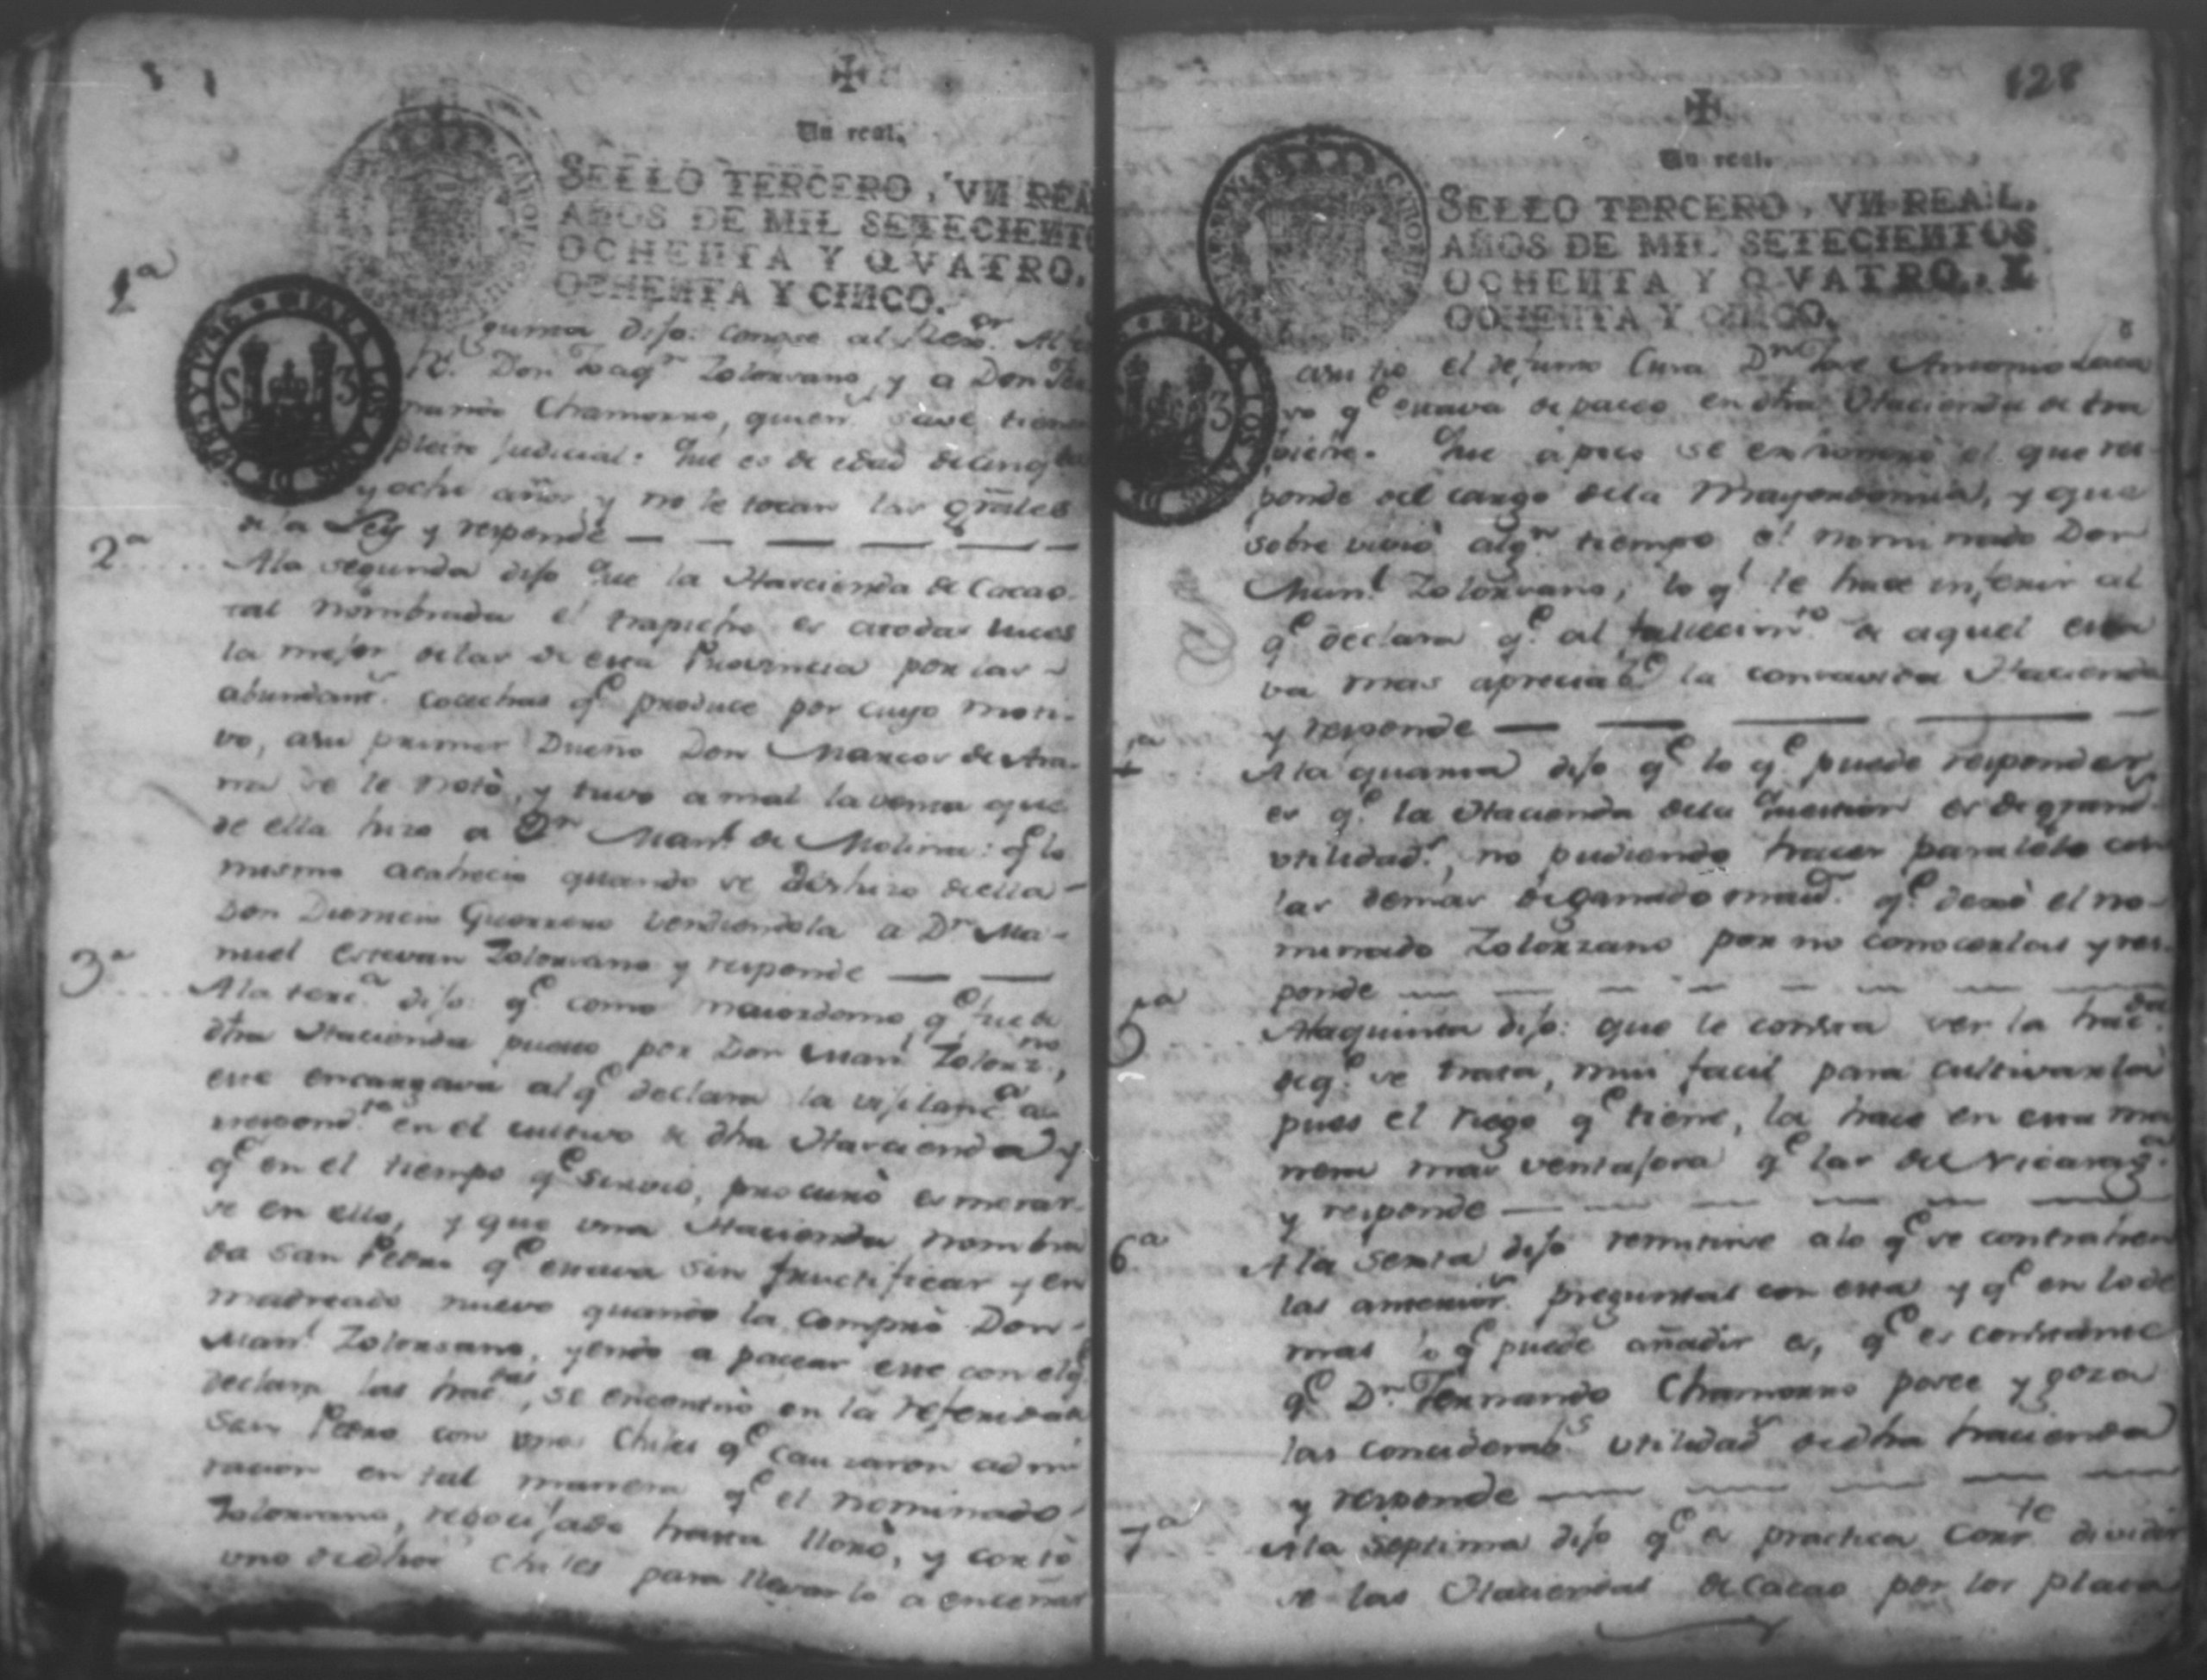 Un real.
SELLO TERCERO, VN REA
AÑOS DE MIL SETECIENTO
OCHENTA Y QVATRO,
OCHENTA Y CINCO.
PARA LOS AÑOS DE 1785 Y 1786
S 3
1ª
gunta dijo: conose al
Don Joaqn Zolorzano, y a Don Fer
nando Chamorro, quien save tienen
pleito judicial: Que es de edad de cinqta
y ocho años, y no le tocan las grales
de la Ley y responde
2ª
A la segunda dijo Que la Hacienda de Cacao
tal nombrada el trapiche es a todas luces
la mejor de las de esta Provincia por las
abundants cocechas qe produce por cuyo moti-
vo, a su primer Dueño Don Marcos de Ara-
na se le notò, y tuvo a mal la venta que
de ella hizo a Dn Manl de Molina: qe lo
mismo acahecio quando se deshizo de ella
Don Diomen Guerrero vendiendola a Dn Ma-
nuel Estevan Zolorzano y responde
3ª
A la terca dijo: qe como maiordomo qe fue de
dha Hacienda puesto por Don Manl Zolorzno,
este encargava al qe declara la vijilanca
en el cultivo de dha Hacienda y
qe en el tiempo qe sirvio, procurò esmerar-
se en ello, y que una Hacienda nombra
da San Pedro qe estava sin fructificar y en
madreado nuevo quando la comprò Don
Manl Zolorzano, yendo a pacear este con el qe
declara las hacdas, se encontrò en la referida
San Pedro con unos Chiles qe cauzaron admi
racion en tal manera qe el nominado
Zolorzano, regocijado hasta llorò, y cortò
uno de dhos Chiles para llevarlo a enceñar
128
Un real.
SELLO TERCERO, VN REAL.
AÑOS DE MIL SETECIENTOS
OCHENTA Y QVATRO, Y
OCHENTA Y CINCO.
PARA LOS A
3
a su tio el defunto Cura Dn Jose Antonio Laca
yo qe estava de paceo en otra Hacienda de tra
piche. Que a poco se exhonerò el que res-
ponde del cargo de la Mayordomia, y que
sobre viviò algn tiempo el nominado Don
Manl Zolorzano, lo ql le hace inferir al
qe declara qe al fallecimto de aquel esta
va mas apreciabe la contenida Hacienda
y responde
4ª
A la quarta dijo qe lo qe puede responder
es qe la Hacienda de la Question es de grands
utilidads, no pudiendo hacer paralelo con
las demas de ganado qe dexò el no-
minado Zolorzano por no conocerlas y res-
ponde
5ª
A la quinta dijo: que le consta ser la hacda
de qe se trata, mui facil para cultivarla
pues el riego qe tiene, la hace en esta ma
nera mas ventajosa qe las de Nicaraga
y responde
6ª
A la Sexta dijo remitirse a lo qe se contrahen
las anteriors preguntas con esta y qe en lo de
mas lo qe puede añadir es, qe es constante
qe Dn Fernando Chamorro posee y goza
las considerabs utilidads de dha hacienda
y responde
7ª
A la Septima dijo qe es practica Corrte dividir
se las Haciendas de Cacao por los plata